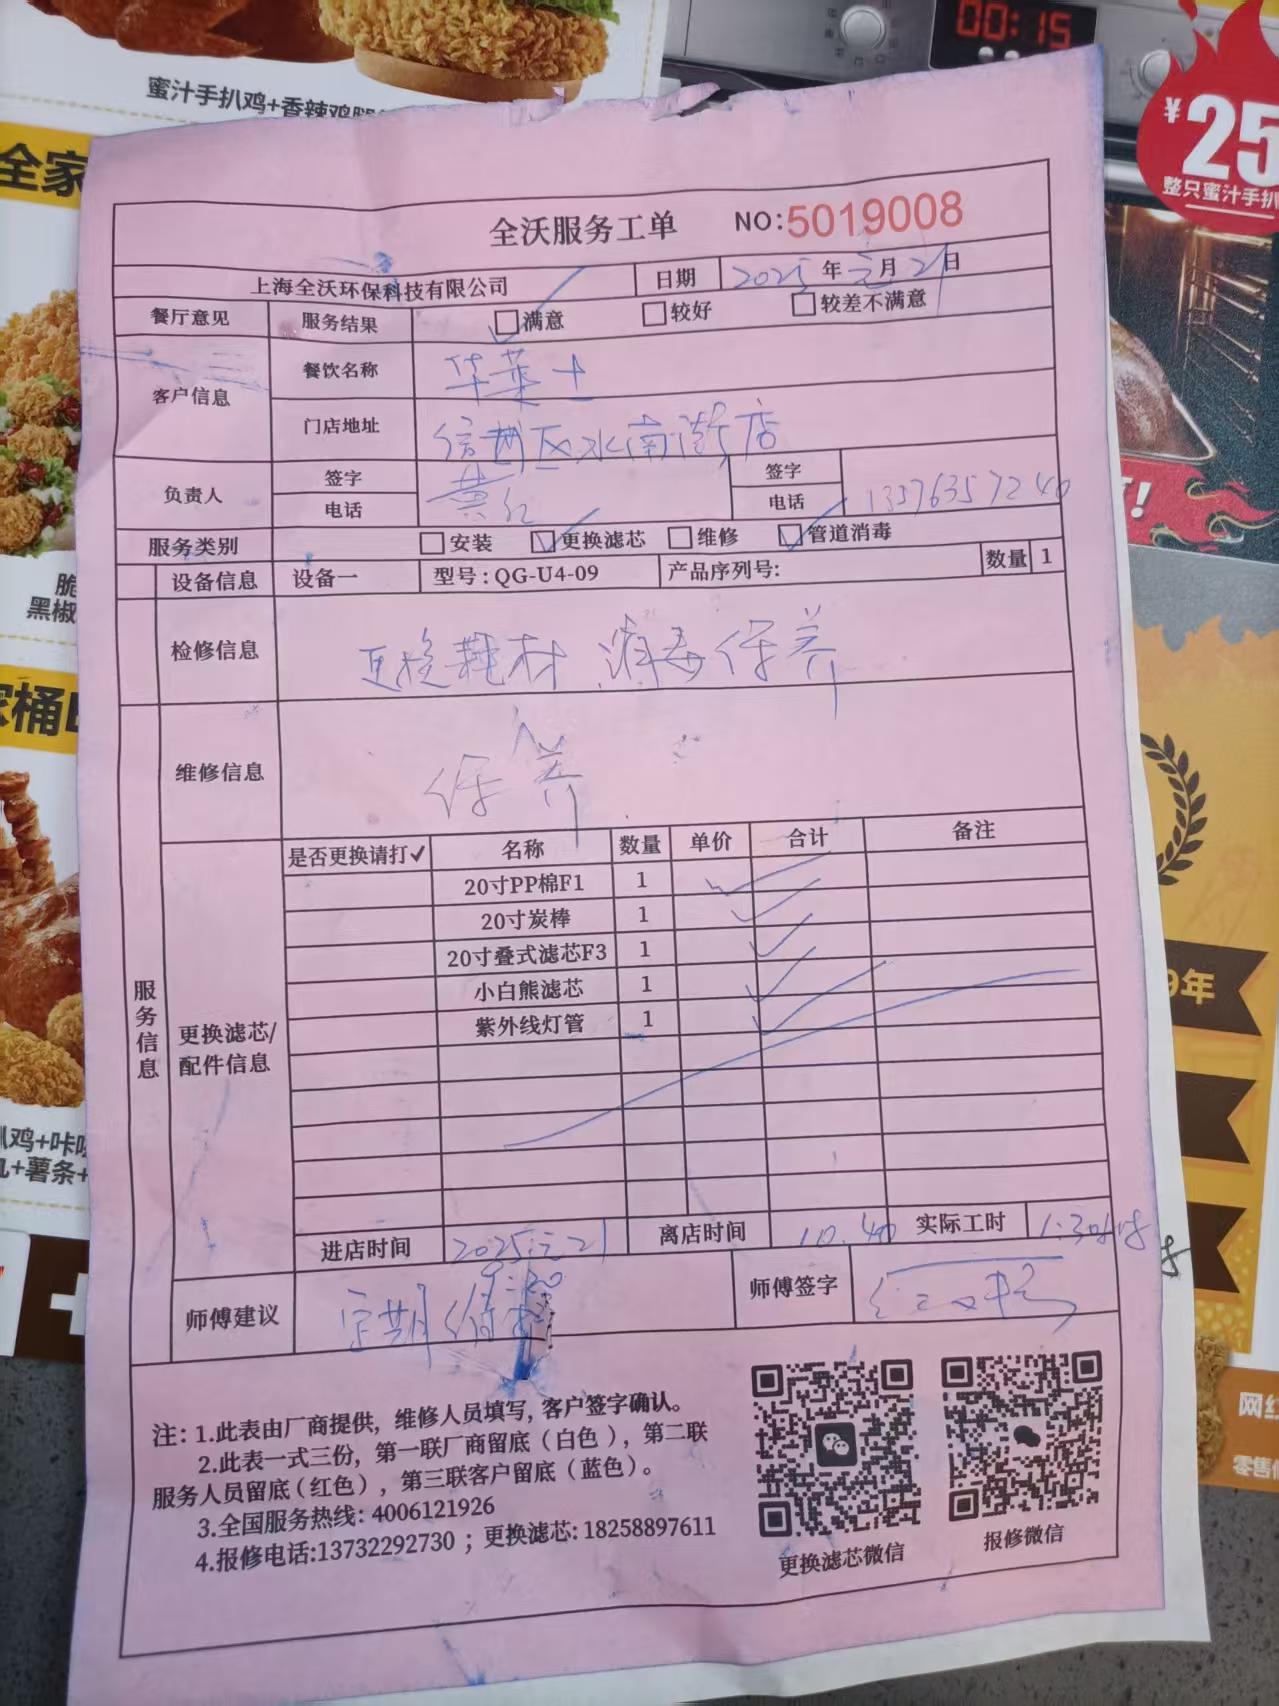 00:15
蜜汁手扒鸡+香辣鸡腿
¥25
整只蜜汁手扒
全家
全沃服务工单 NO:5019008
上海全沃环保科技有限公司 日期 2025年元月21日
餐厅意见 服务结果 满意 较好 较差不满意
客户信息 餐饮名称 华莱士
门店地址 信州区水南街店
负责人 签字 黄 签字
电话 电话 13576357240
服务类别 安装 更换滤芯 维修 管道消毒
设备信息 设备一 型号:QG-U4-09 产品序列号: 数量 1
检修信息 更换耗材 消毒保养
维修信息 保养
服务信息
更换滤芯/配件信息
是否更换请打✓ 名称 数量 单价 合计 备注
20寸PP棉F1 1 ✓
20寸炭棒 1 ✓
20寸叠式滤芯F3 1 ✓
小白熊滤芯 1 ✓
紫外线灯管 1 ✓
进店时间 2025元21 离店时间 10.40 实际工时 1.30
师傅建议 定期 师傅签字
注: 1.此表由厂商提供, 维修人员填写, 客户签字确认。
2.此表一式三份, 第一联厂商留底(白色), 第二联
服务人员留底(红色), 第三联客户留底(蓝色)。
3.全国服务热线: 4006121926
4.报修电话:13732292730 ; 更换滤芯: 18258897611
更换滤芯微信 报修微信
脆
黑椒
桶
扒鸡+咔
+薯条+
9年
网红
零售